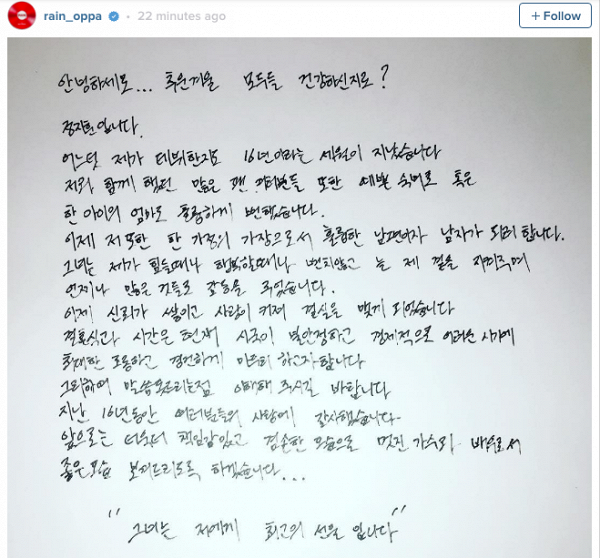 rain_oppa • 22 minutes ago
+ Follow
안녕하세요... 추운겨울 모두들 건강하신지요?
정지훈 입니다.
어느덧 제가 데뷔한지도 16년이라는 세월이 지났습니다
저와 함께 했던 많은 팬 여러분들 또한 예쁜 숙녀로 혹은
한 아이의 엄마로 훌륭하게 변했습니다.
이제 저 또한 한 가정의 가장으로서 훌륭한 남편이자 남자가 되려 합니다.
그녀는 제가 힘들때나 행복할때나 변치않고 늘 제 곁을 지켜주며
언제나 많은것들로 감동을 주었습니다.
이제 신뢰가 쌓이고 사랑이 커져 결실을 맺게 되었습니다
결혼식과 시간은 현재 시국이 불안정하고 경제적으로 어려운 시기에
최대한 조용하고 경건하게 미무리 하고자 합니다
그리하여 말씀못드리는점 이해해 주시길 바랍니다
지난 16년동안 여러분들의 사랑에 감사했습니다.
앞으로는 더욱더 책임감있고 겸손한 모습으로 멋진 가수와 배우로서
좋은모습 보여드리도록 하겠습니다...
"그녀는 저에게 최고의 선물 입니다"